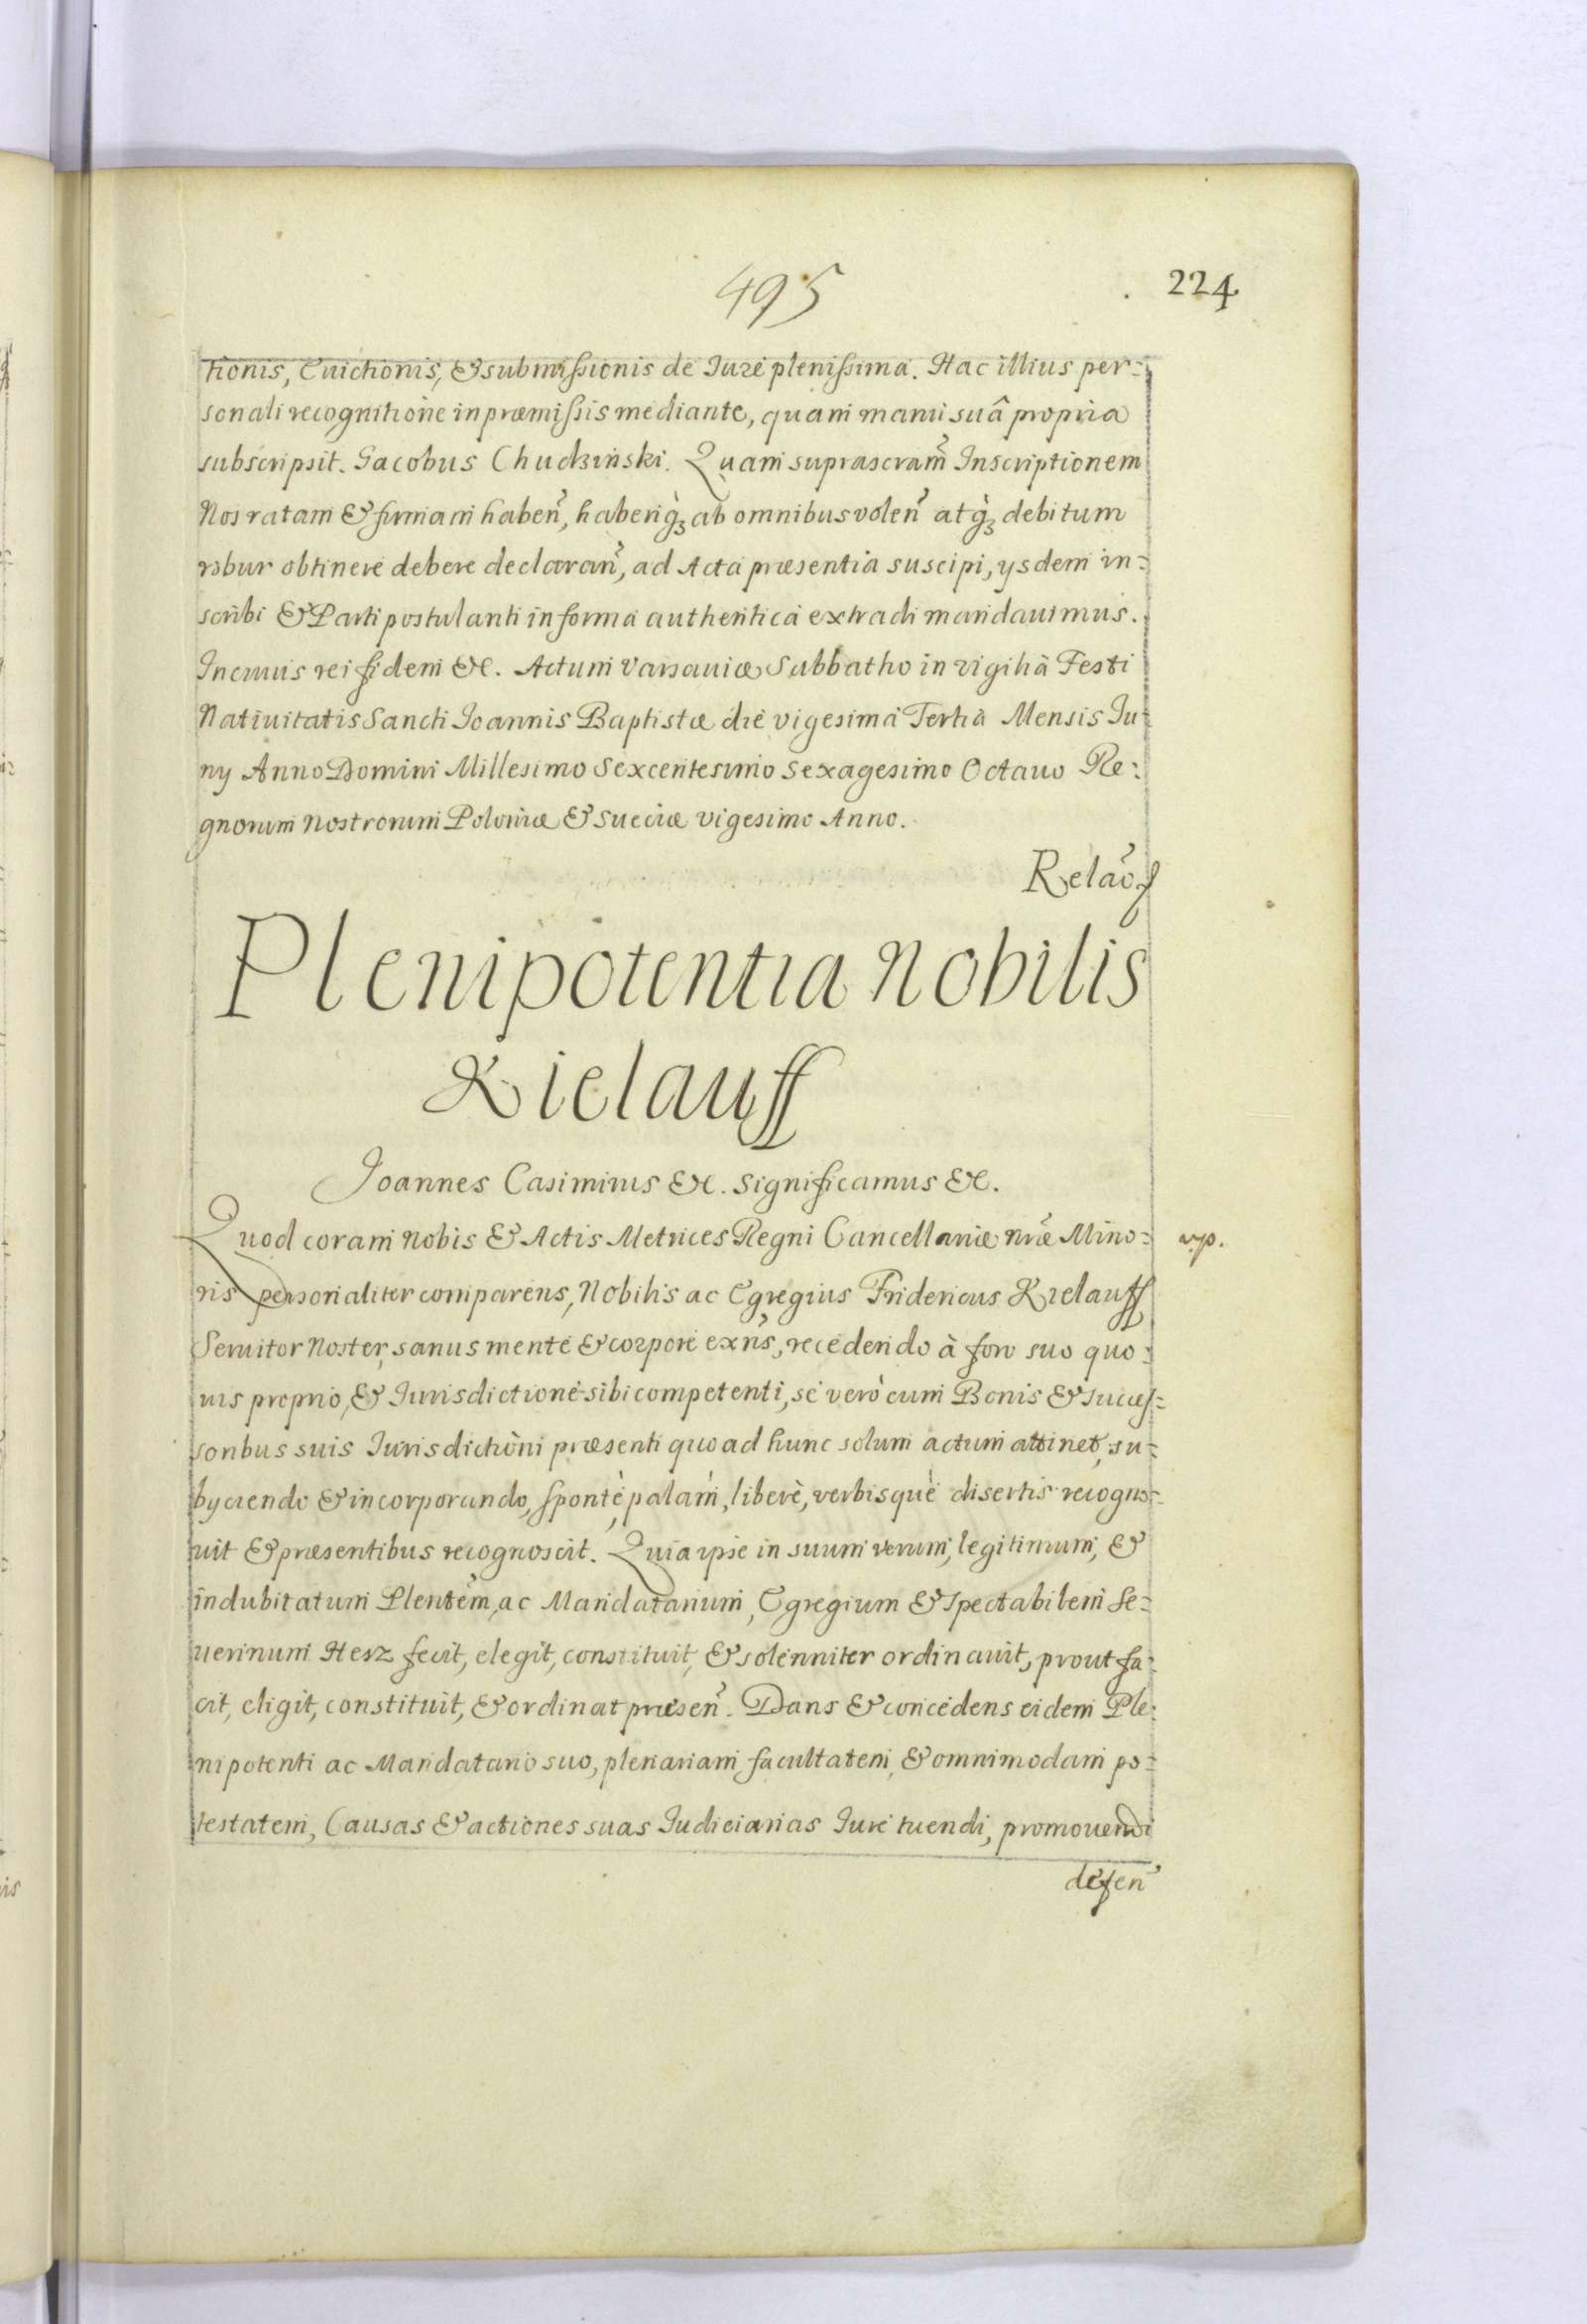 495
224
tionis, Euictionis, & submißionis de Iure plenißima. Hac illius per=
sonali recognitione in præmißis mediante, quam manu suâ propria
subscripsit. Jacobus Chudziński. Quam suprascram̃ Inscriptionem
Nos ratam & firmam habeñ, haberiq̀ꝫ ab omnibus voleñ atq̀ꝫ debitum
robur obtinere debere declarañ, ad Acta præsentia suscipi, ysdem in=
scribi & Parti postulanti in forma authentica extradi mandauimus.
In cuius rei fidem &c. Actum Varsauiæ Sabbatho in vigiliâ Festi
Natiuitatis Sancti Joannis Baptistæ die vigesima Tertia Mensis Ju=
ny Anno Domini Millesimo Sexcentesimo Sexagesimo Octauo Re=
gnorum nostrorum Poloniæ & Sueciæ vigesimo Anno.
Relãof
Plenipotentia Nobilis
Kielauff
Joannes Casimirus &c. Significamus &c.
Quod coram Nobis & Actis Metrices Regni Cancellariæ nr̃æ Mino=
vp.
ris personaliter comparens, Nobilis ac Egregius Fridericus Kielauff
Seruitor Noster, sanus mente & corpore exñs, recedendo à foro suo quo=
uis proprio, & Jurisdictione sibi competenti, sè verò cum Bonis & Succeſ=
soribus suis Jurisdictioni præsenti quo ad hunc solum actum attinet, su=
byciendo & incorporando, spontè, palàm, liberè, verbisquè disertis recogno=
uit & præsentibus recognoscit. Quia ipse in suum verum, legitimum, &
indubitatum Plentẽm, ac Mandatarium, Egregium & Spectabilem Se=
uerinum Herz fecit, elegit, constituit, & solenniter ordinauit, prout fa=
cit, eligit, constituit, & ordinat præseñ. Dans & concedens eidem Ple=
nipotenti ac Mandatario suo, plenariam facultatem, & omnimodam po=
testatem, Causas & actiones suas Judiciarias Jure tuendi, promouendi
defeñ